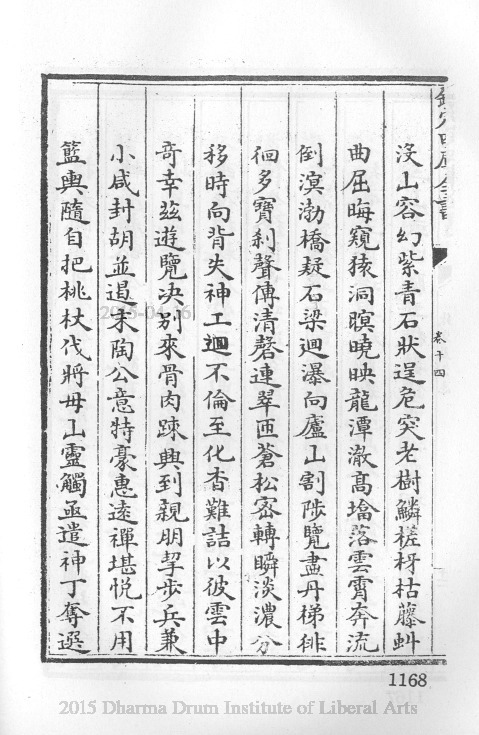 欽定四庫全書
卷十四
沒山容幻紫青石狀逞危突老樹鱗槎枒枯藤虬
曲屈晦窺猿洞瞑曉映龍潭澈高埨落雲霄奔流
倒溟渤橋疑石梁迴瀑向廬山割陟覽盡丹梯徘
徊多寶刹聲傳清磬連翠匝蒼松密轉瞬淡濃分
移時向背失神工迴不倫至化杳難詰以彼雲中
奇幸兹遊覽决别來骨肉踈興到親朋挈步兵兼
小咸封胡並遏末陶公意特豪惠遠禪堪悦不用
籃輿隨自把桃杖伐將毋山靈觸亟遣神丁奪選
2015-04-16
1168
2015 Dharma Drum Institute of Liberal Arts